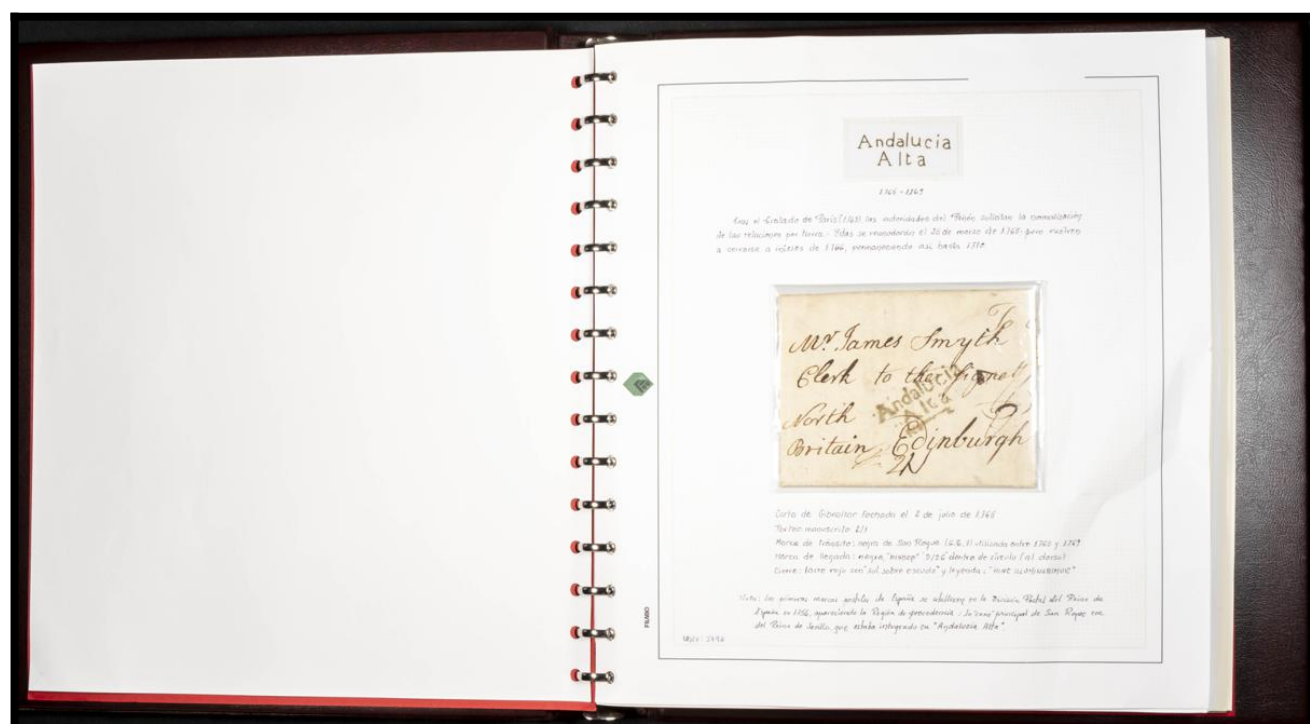 Andalucia
Alta
1765 - 1769
Tras el Tratado de París (1763), las autoridades del Peñón solicitan la normalización
de las relaciones por tierra. Estas se reanudarán el 26 de marzo de 1765 pero vuelven
a cerrarse a inicios de 1766, permaneciendo así hasta
To
Mr. James Smyth
Clerk to the Signet
Andalucia
Alta
North
Britain Edinburgh
Carta de Gibraltar fechada el 2 de julio de
Porteo manuscrito 2/1
Marca de tránsito: negra de San Roque utilizada entre 1765 y 1769
Marca de llegada: negra, dentro de círculo (al dorso)
Cierre: lacre rojo con "sol sobre escudo" y leyenda:
Nota: las primeras marcas postales de España se utilizan en la División Postal del Reino de
España en 1756, apareciendo la Región de procedencia. La "caja" principal de San Roque era
del Reino de Sevilla, que estaba integrado en "Andalucia Alta".
FILABO